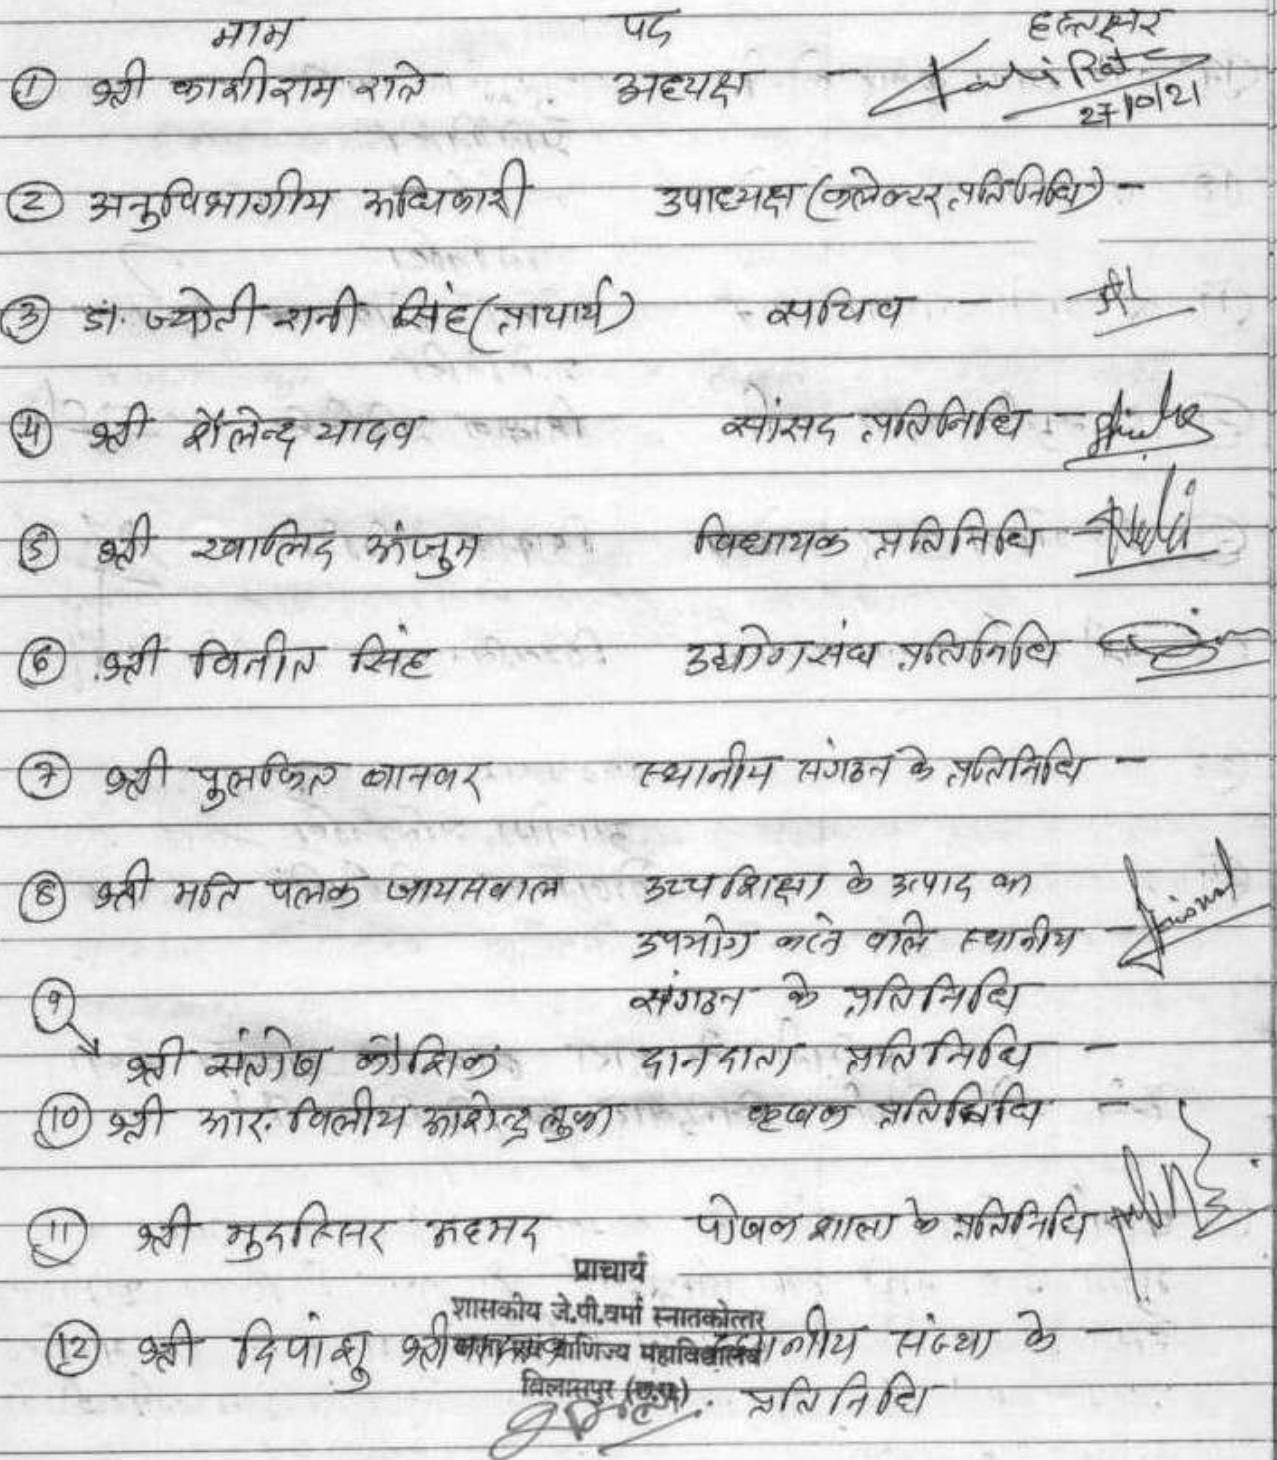 नाम पद हस्ताक्षर
① श्री काशीराम राते अध्यक्ष -
27/10/21
② अनुविभागीय अधिकारी उपाध्यक्ष (कलेक्टर प्रतिनिधि) -
③ डॉ. ज्योती रानी सिंह (प्राचार्य) सचिव -
④ श्री शैलेन्द्र यादव सांसद प्रतिनिधि -
⑤ श्री खालिद अंजुम विधायक प्रतिनिधि -
⑥ श्री विनीत सिंह उद्योग संघ प्रतिनिधि
⑦ श्री पुलकित स्थानीय संगठन के प्रतिनिधि -
⑧ श्री मति पलक जायसवाल उच्च शिक्षा के उत्पाद का
उपयोग करने वाले स्थानीय -
संगठन के प्रतिनिधि
⑨
श्री संतोष कौशिक दानदाता प्रतिनिधि -
⑩ श्री आर. कृषक प्रतिनिधि -
⑪ श्री मुदस्सिर अहमद पोषक शाला के प्रतिनिधि
प्राचार्य
शासकीय जे.पी.वर्मा स्नातकोत्तर
⑫ श्री दिपांशु स्थानीय संस्था के -
वाणिज्य महाविद्यालय
बिलासपुर (छ.ग.) प्रतिनिधि